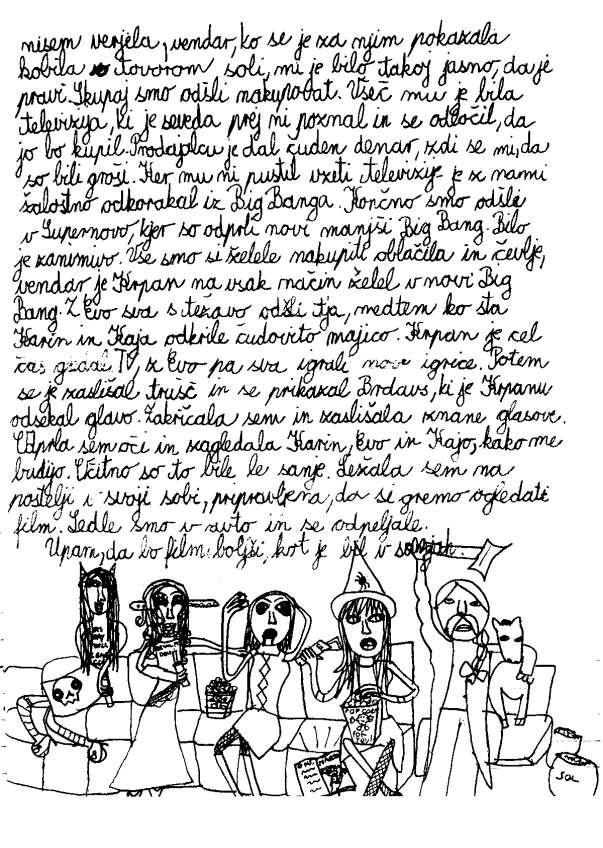 nisem verjela, vendar, ko se je za njim pokazala
kobila s tovorom soli, mi je bilo takoj jasno, da je
pravi. Skupaj smo odšli nakupovat. Všeč mu je bila
televizija, ki je seveda prej ni poznal in se odločil, da
jo bo kupil. Prodajalcu je dal čuden denar, zdi se mi, da
so bili groši. Ker mu ni pustil vzeti televizije je z nami
žalostno odkorakal iz Big Banga. Končno smo odšle
v Supernovo, kjer so odprli novi manjši Big Bang. Bilo
je zanimivo. Vse smo si želele nakupiti oblačila in čevlje,
vendar je Krpan na vsak način želel v novi Big
Bang. Z Evo sva s težavo odšli tja, medtem ko sta
Karin in Kaja odkrile čudovito majico. Krpan je cel
čas gledal TV, z Evo pa sva igrali nove igrice. Potem
se je zaslišal trušč in se prikazal Brdavs, ki je Krpanu
odsekal glavo. Zakričala sem in zaslišala znane glasove.
Odprla sem oči in zagledala Karin, Evo in Kajo, kako me
budijo. Očitno so to bile le sanje. Ležala sem na
postelji v svoji sobi, pripravljena, da si gremo ogledati
film. Sedle smo v avto in se odpeljale.
Upam, da bo film boljši, kot je bil v sanjah.
SOL